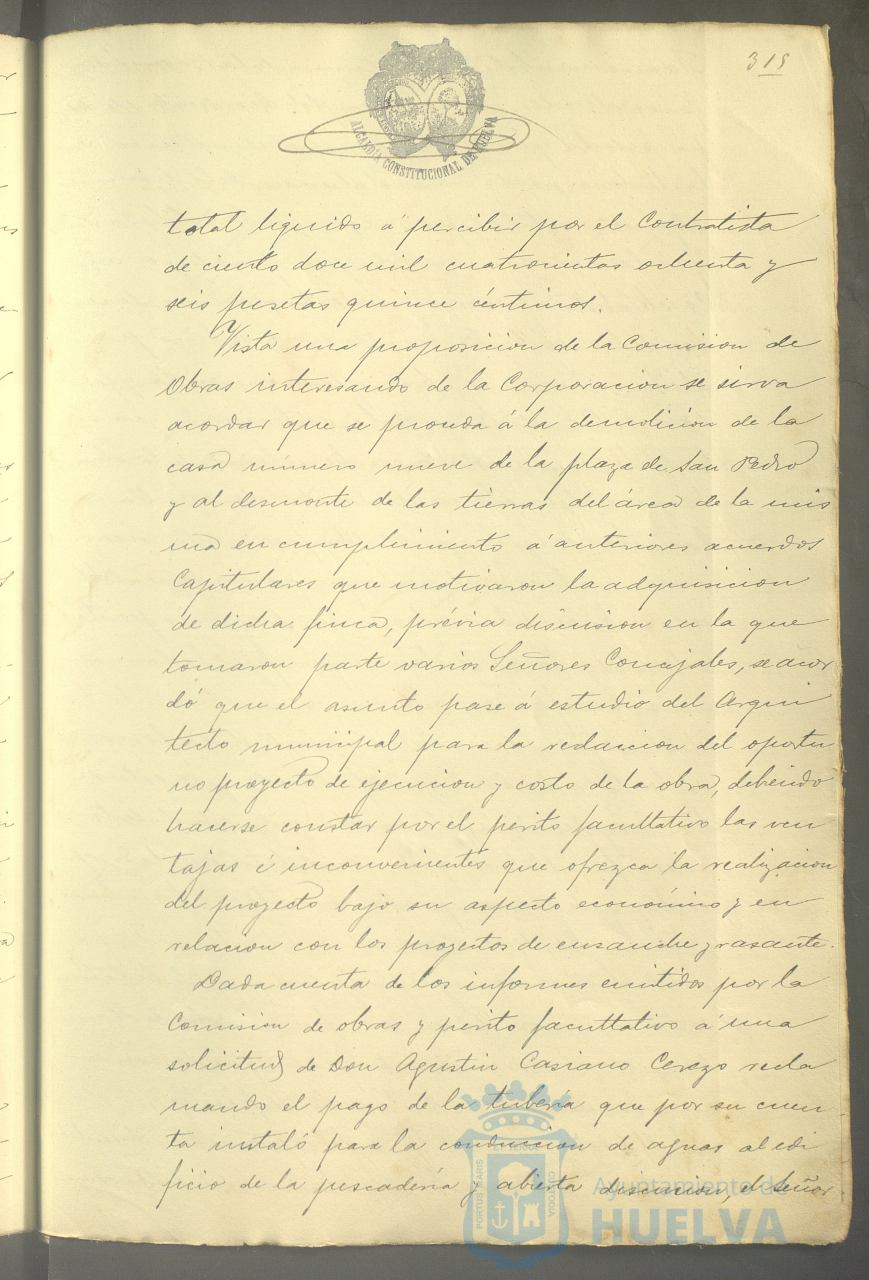 315
ALCALDÍA CONSTITUCIONAL DE HUELVA
total liquido á percibir por el Contratista
de ciento doce mil cuatrocientas ochenta y
seis pesetas quince céntimos.
Vista una proposicion de la Comision de
Obras interesando de la Corporacion se sirva
acordar que se proceda á la demolicion de la
casa número nueve de la plaza de San Pedro
y al desmonte de las tierras del área de la mis
ma en cumplimiento á anteriores acuerdos
Capitulares que motivaron la adquisicion
de dicha finca, prévia discusion en la que
tomaron parte varios Señores Concejales, se acor
dó que el asunto pase á estudio del Arqui
tecto municipal para la redaccion del oportu
no proyecto de ejecucion y costo de la obra, debiendo
hacerse constar por el perito facultativo las ven
tajas é inconvenientes que ofrezca la realizacion
del proyecto bajo su aspecto económico y en
relacion con los proyectos de ensanche y rasante.
Dada cuenta de los informes emitidos por la
Comision de obras y perito facultativo á una
solicitud de Don Agustin Casiano Cerezo recla
mando el pago de la tubería que por su cuen
ta instaló para la conduccion de aguas al edi
ficio de la pescadería y abierta discusion, el Señor
PORTUS MARIS ET TERRAE CUSTODIA
Ayuntamiento de
HUELVA